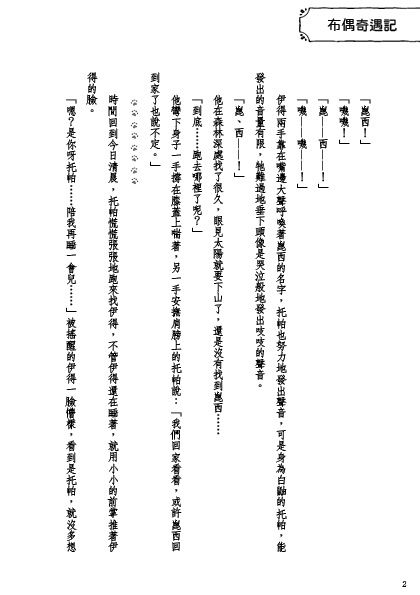 布偶奇遇記
「崑西！」
「嘰嘰！」
「崑——西——！」
「嘰——嘰——！」
伊得兩手靠在嘴邊大聲呼喚著崑西的名字，托帕也努力地發出聲音，可是身為白鼬的托帕，能
發出的音量有限，牠難過地垂下頭像是哭泣般地發出吱吱的聲音。
「崑、西——！」
他在森林深處找了很久，眼見太陽就要下山了，還是沒有找到崑西……
「到底……跑去哪裡了呢？」
他彎下身子一手撐在膝蓋上喘著，另一手安撫肩膀上的托帕說：「我們回家看看，或許崑西回
到家了也說不定。」
時間回到今日清晨，托帕慌慌張張地跑來找伊得，不管伊得還在睡著，就用小小的前掌推著伊
得的臉。
「嗯？是你呀托帕……陪我再睡一會兒……」被搖醒的伊得一臉懵樣，看到是托帕，就沒多想
2